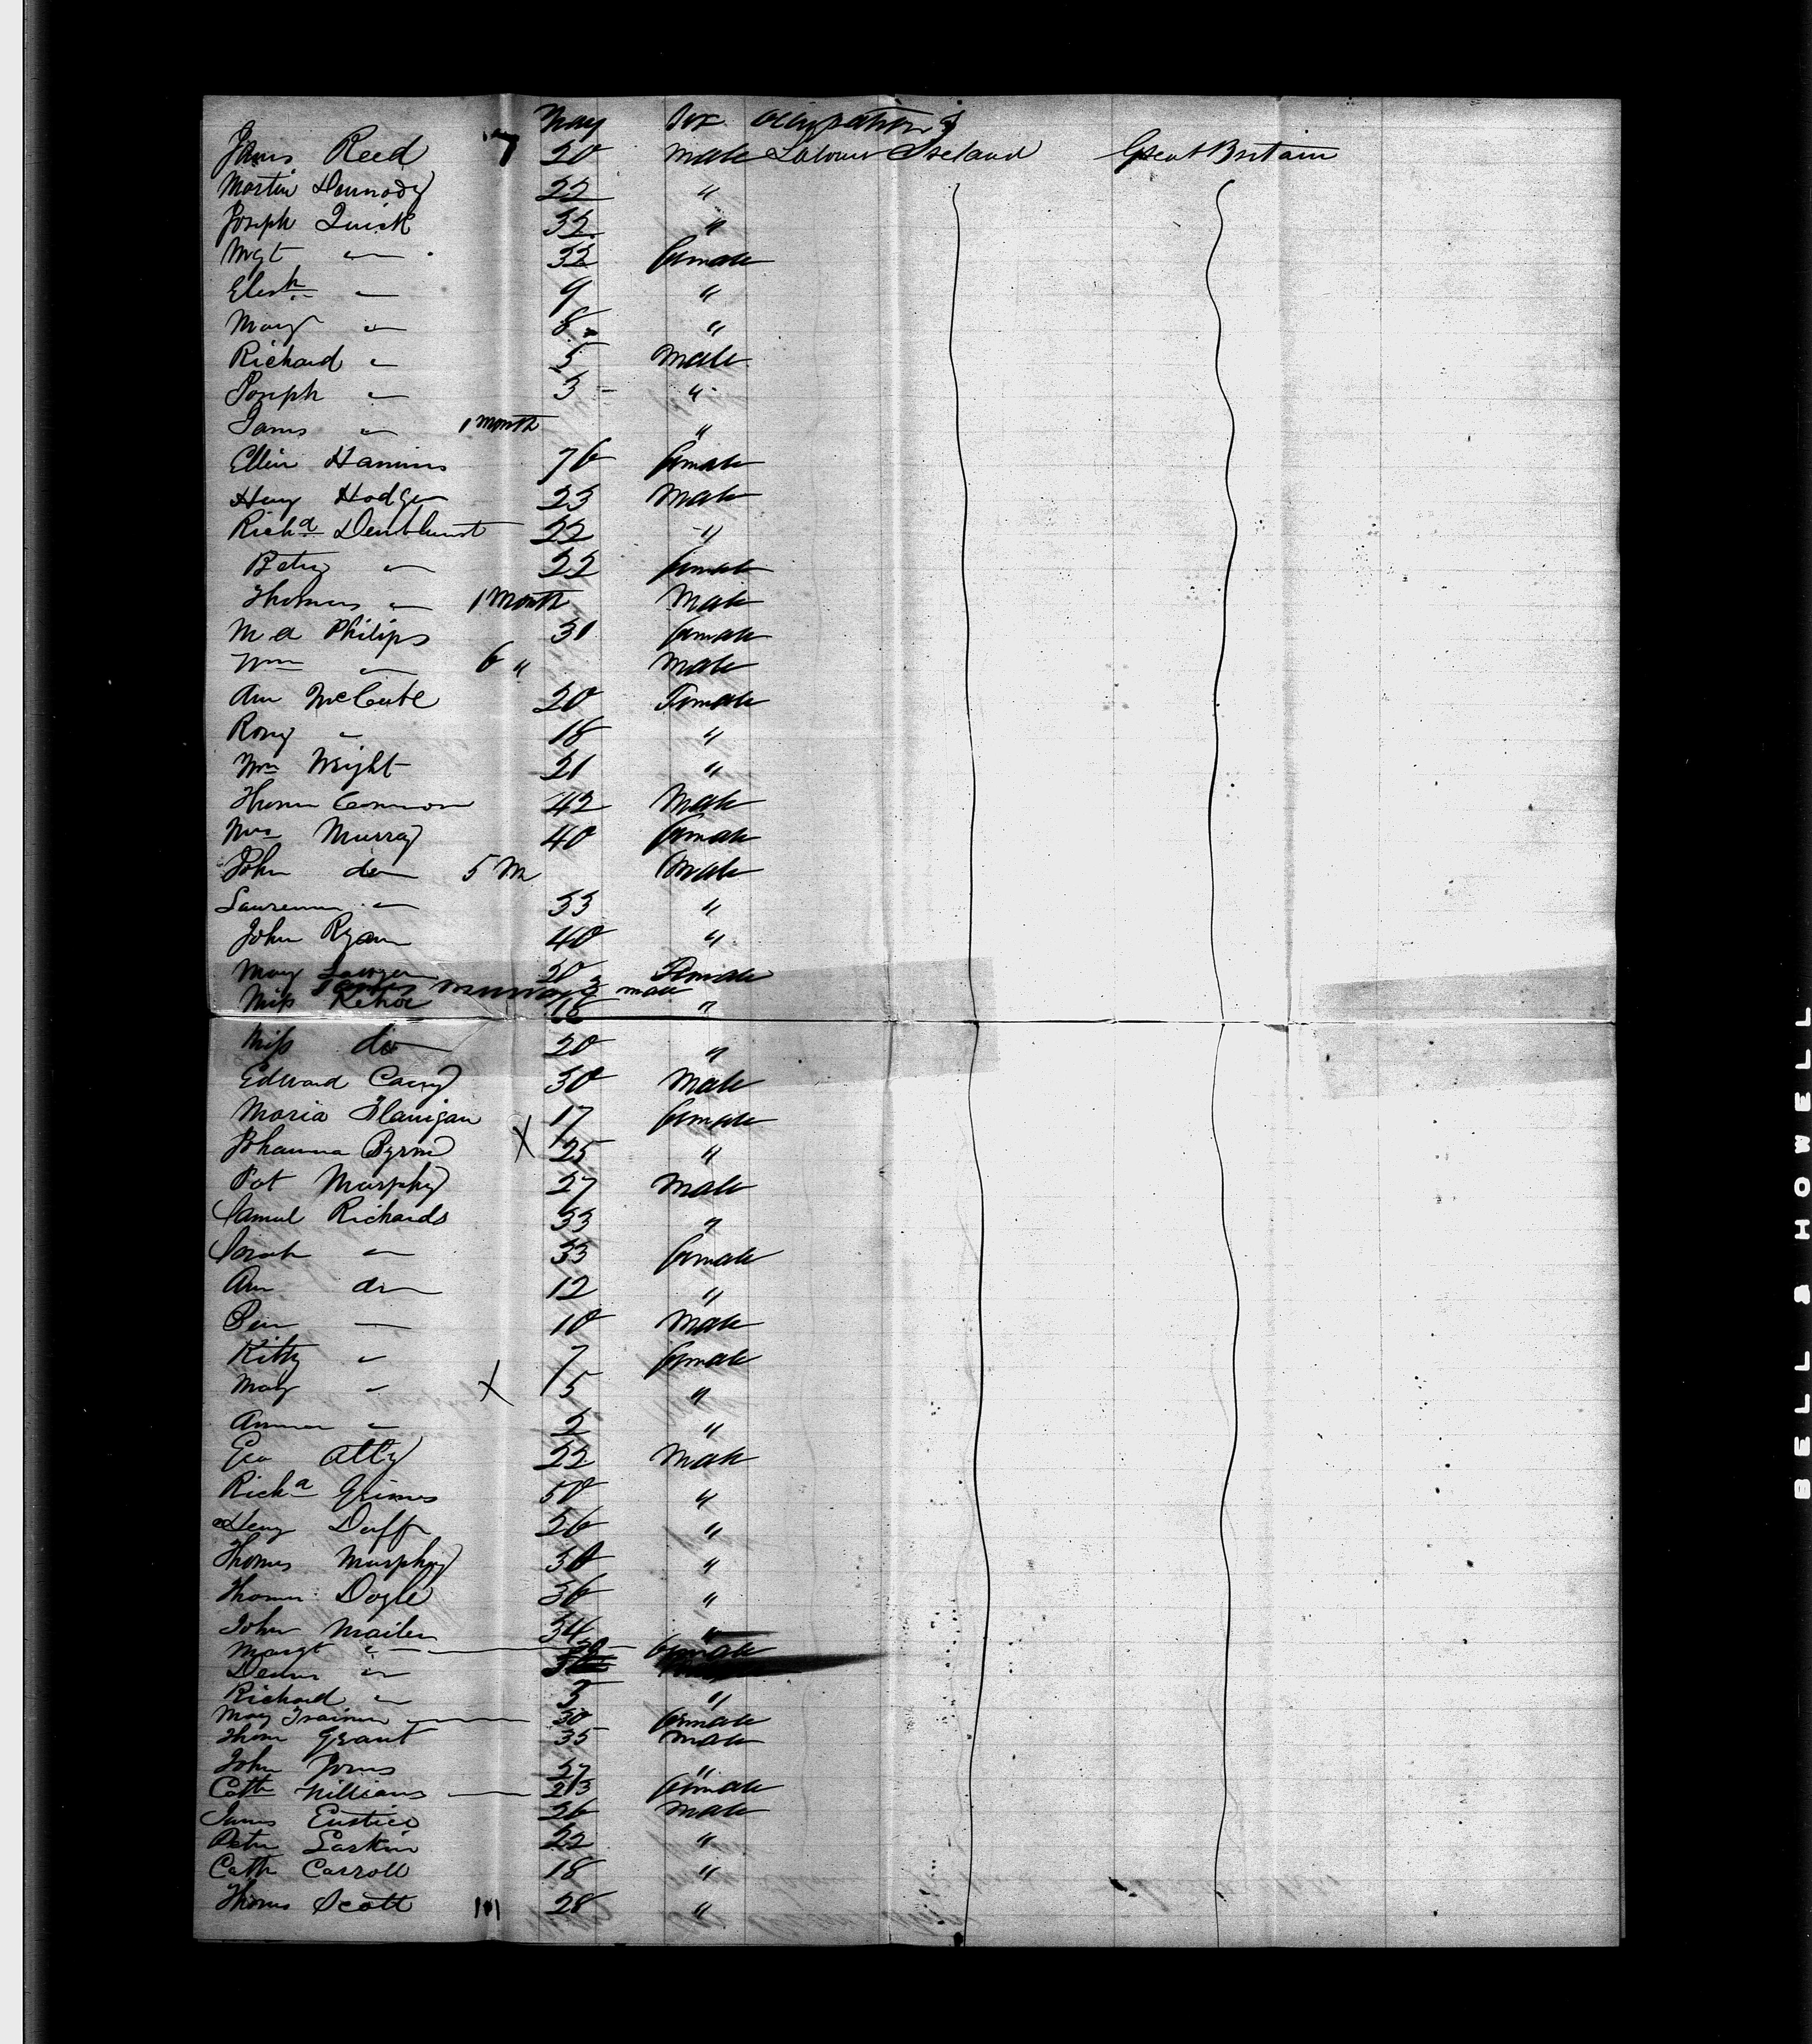 Sex occupation
James Reed 20 male Labour Ireland Great Britain
Martin 22 "
Joseph Quirk 32 "
Mgt " 32 female
" 9 "
Mary " 8 "
Richard " 5 Male
Joseph " 3 "
James " 1 month "
Ellen 76 female
Heny Hodgen 23 Male
Richd 22 "
Betsy " 22 female
Thomas " 1 Month Male
M a Philips 31 female
Wm " 6 " Male
Ann McCabe 20 Female
Rosy " 18 "
Wm Wright 21 "
Thomas 42 Male
Mrs Murray 40 female
John do 5 M Male
Laurence " 33 "
John Ryan 40 "
Mary 20 Female
James Murray 3 male
Miss Kehoe 18 "
Miss do 20 "
Edward 30 Male
Maria Flanigan 17 female
Johanna Byrne X 25 "
Pat Murphy 27 Male
Samul Richards 33 "
Sarah " 33 female
Ann do 12 "
Ben — 10 Male
Kitty " 7 female
Mary " X 5 "
" 2 "
Geo Atty 22 Male
Richd Grimes 50 "
Heny Duff 26 "
Thomas Murphy 30 "
Thomas Doyle 36 "
John 34 "
Margt " female
"
Richard " 3 "
Mary Trainor 30 female
Thom Grant 35 male
John Jones 27 "
Cath Williams 23 female
James Eustice 26 Male
Peter Larkin 22 "
Cath Carroll 18 "
Thomas Scott 101 28 "
BELL & HOWELL